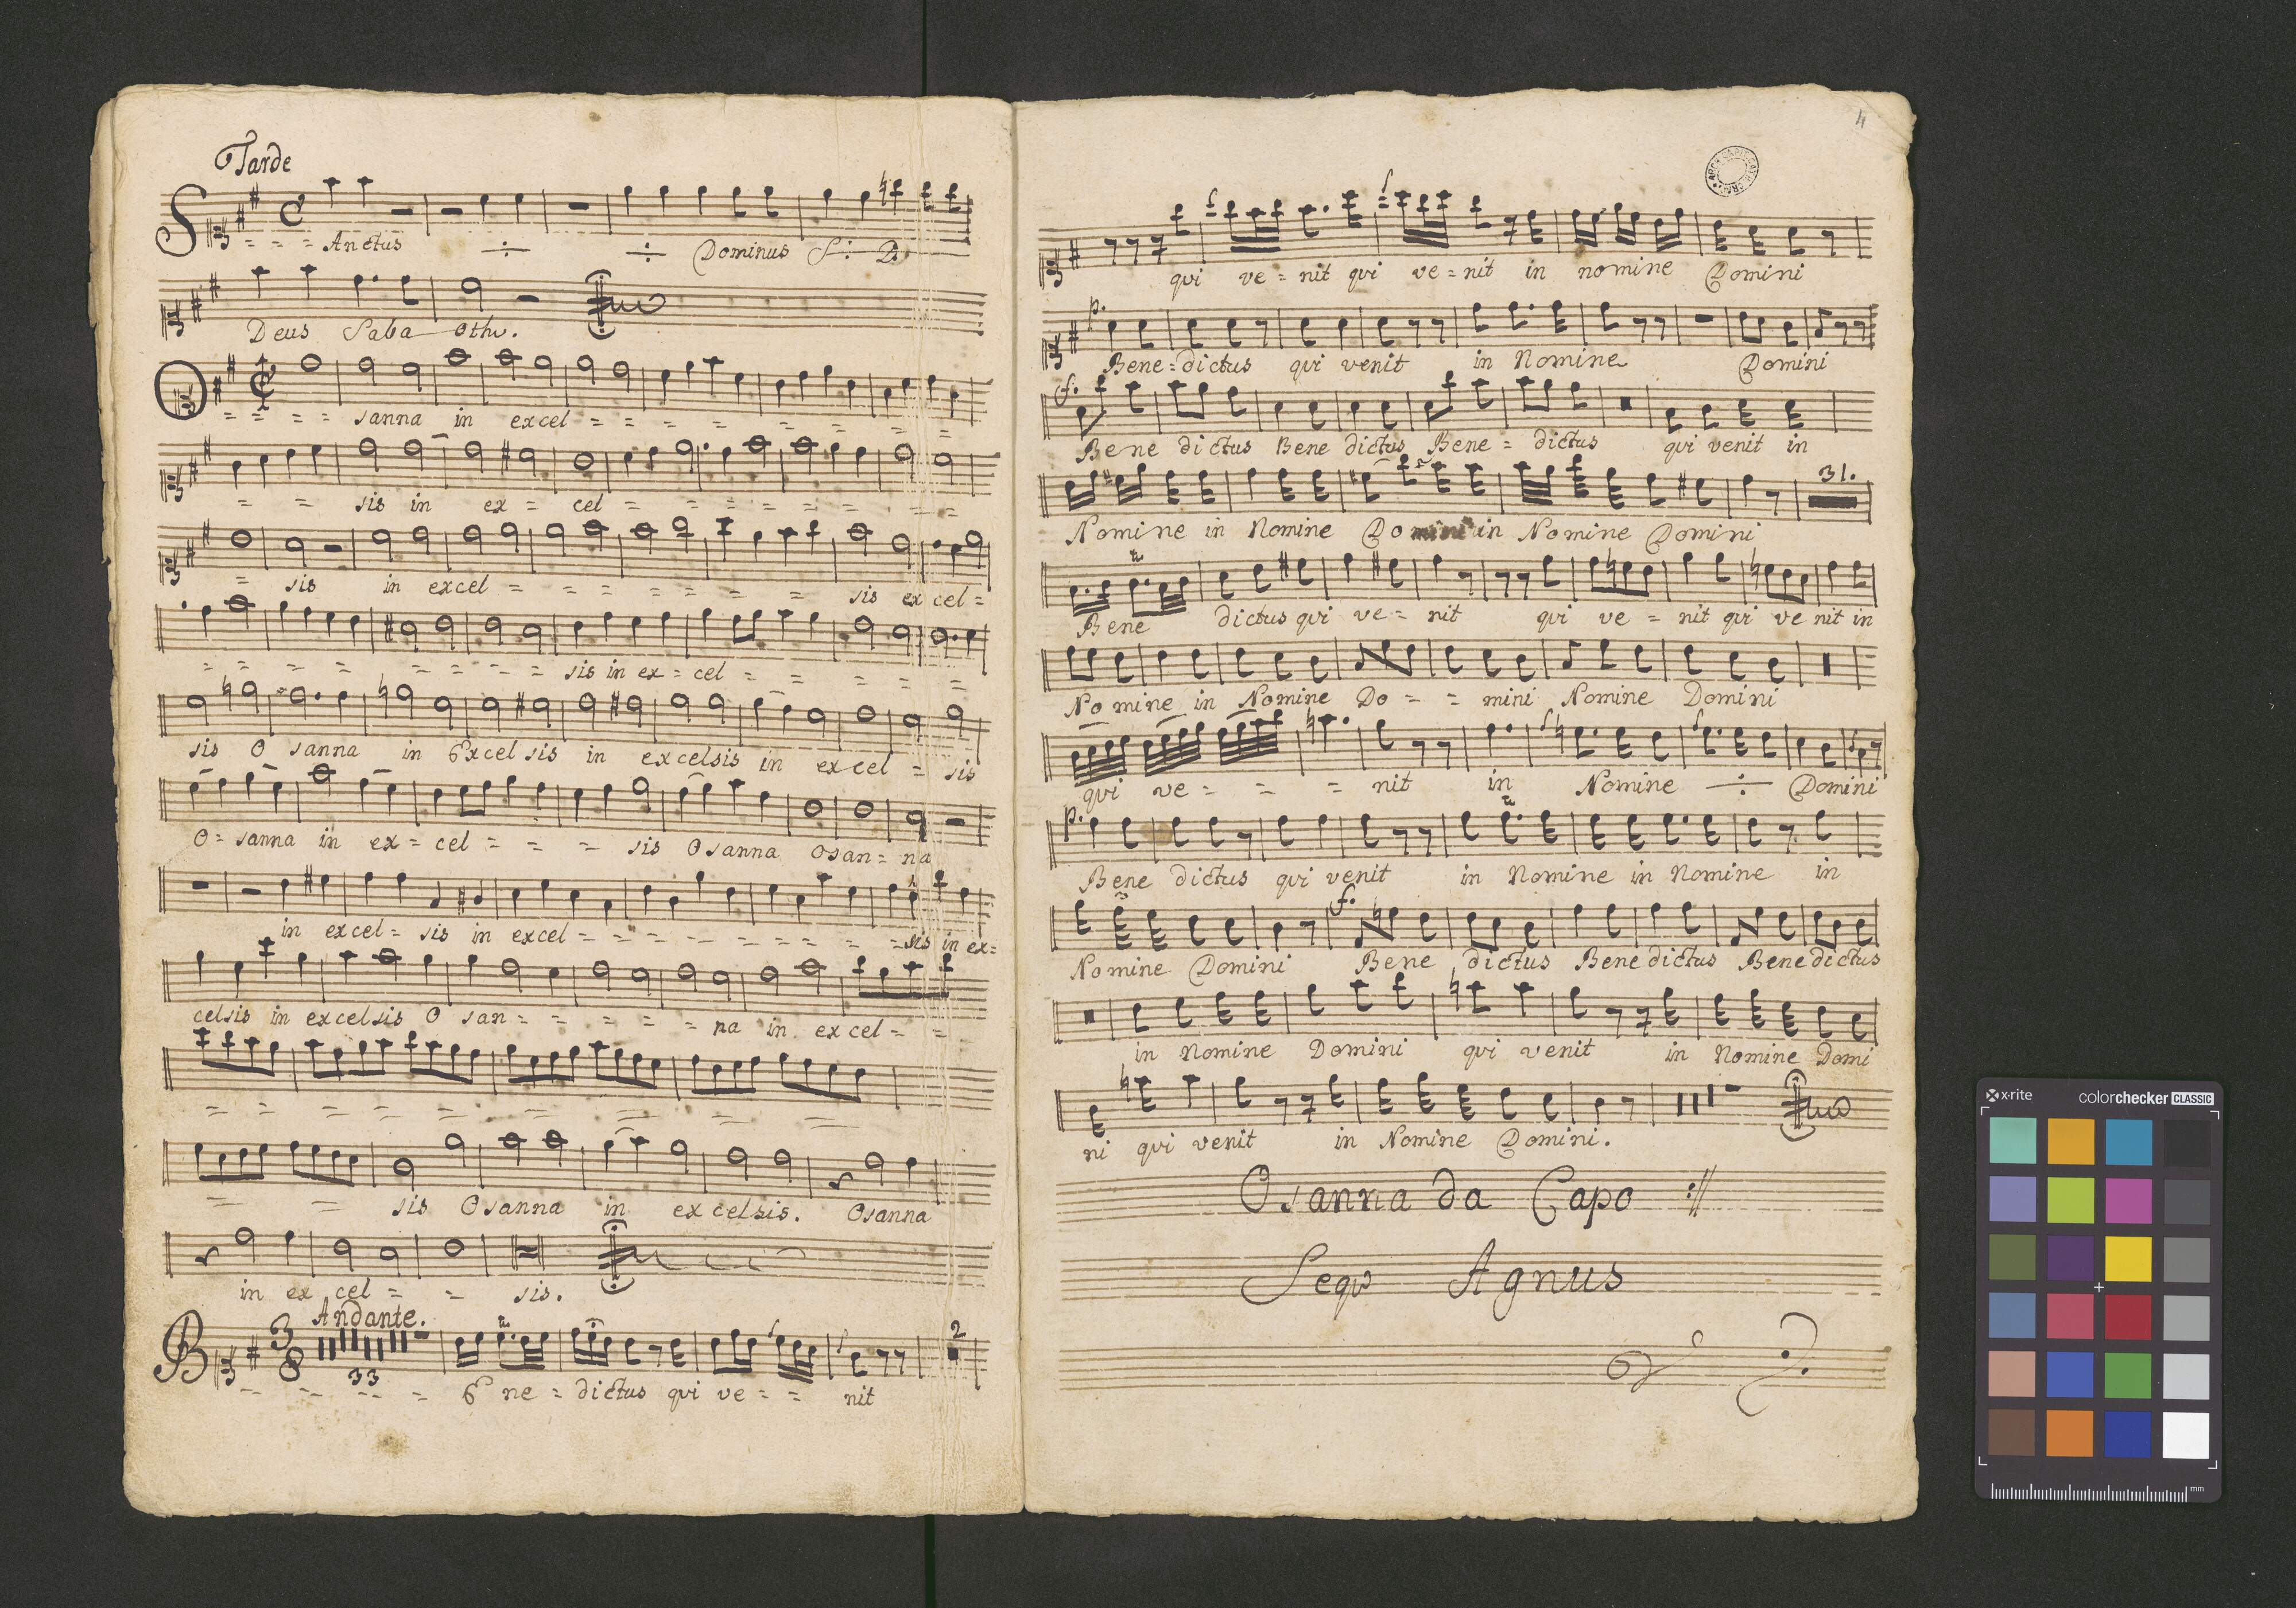 Tarde
S = = = Anctus ÷ ÷ Dominus S: D
Deus Saba oth.
O = = = = sanna in excel = = = = = = =
= = sis in ex = cel = = = = = = = =
= sis in excel = = = = = = = sis ex cel =
= = = = = = = = sis in ex = cel = = = = =
sis O sanna in Excel sis in excelsis in ex cel = sis
O = sanna in ex = cel = = = sis Osanna Osan = na
in excel = sis in excel = = = = = = = = = = sis in ex =
celsis in excelsis O san = = = = = na in ex cel = =
= = = = = = = = =
= = sis Osanna in ex celsis. Osanna
in ex cel = = sis.
Andante.
B 3 8 33 2
= = = = E ne = dictus qui ve = = nit
4
qui ve = nit qui ve = nit in nomine Domini
p.
Bene = dictus qui venit in Nomine Domini
f.
Bene dictus Bene dictus Bene = dictus qui venit in
31.
Nomine in Nomine Do mini in Nomine Domini
Bene dictus qui ve = nit qui ve = nit qui ve nit in
No mine in Nomine Do = = mini Nomine Domini
qui ve = = = nit in Nomine ÷ Domini
p.
Bene dictus qui venit in Nomine in Nomine in
f.
Nomine Domini Bene dictus Bene dictus Bene dictus
in Nomine Domini qui venit in Nomine Domi
ni qui venit in Nomine Domini.
Osanna da Capo
Seqr Agnus
x-rite colorchecker CLASSIC
mm